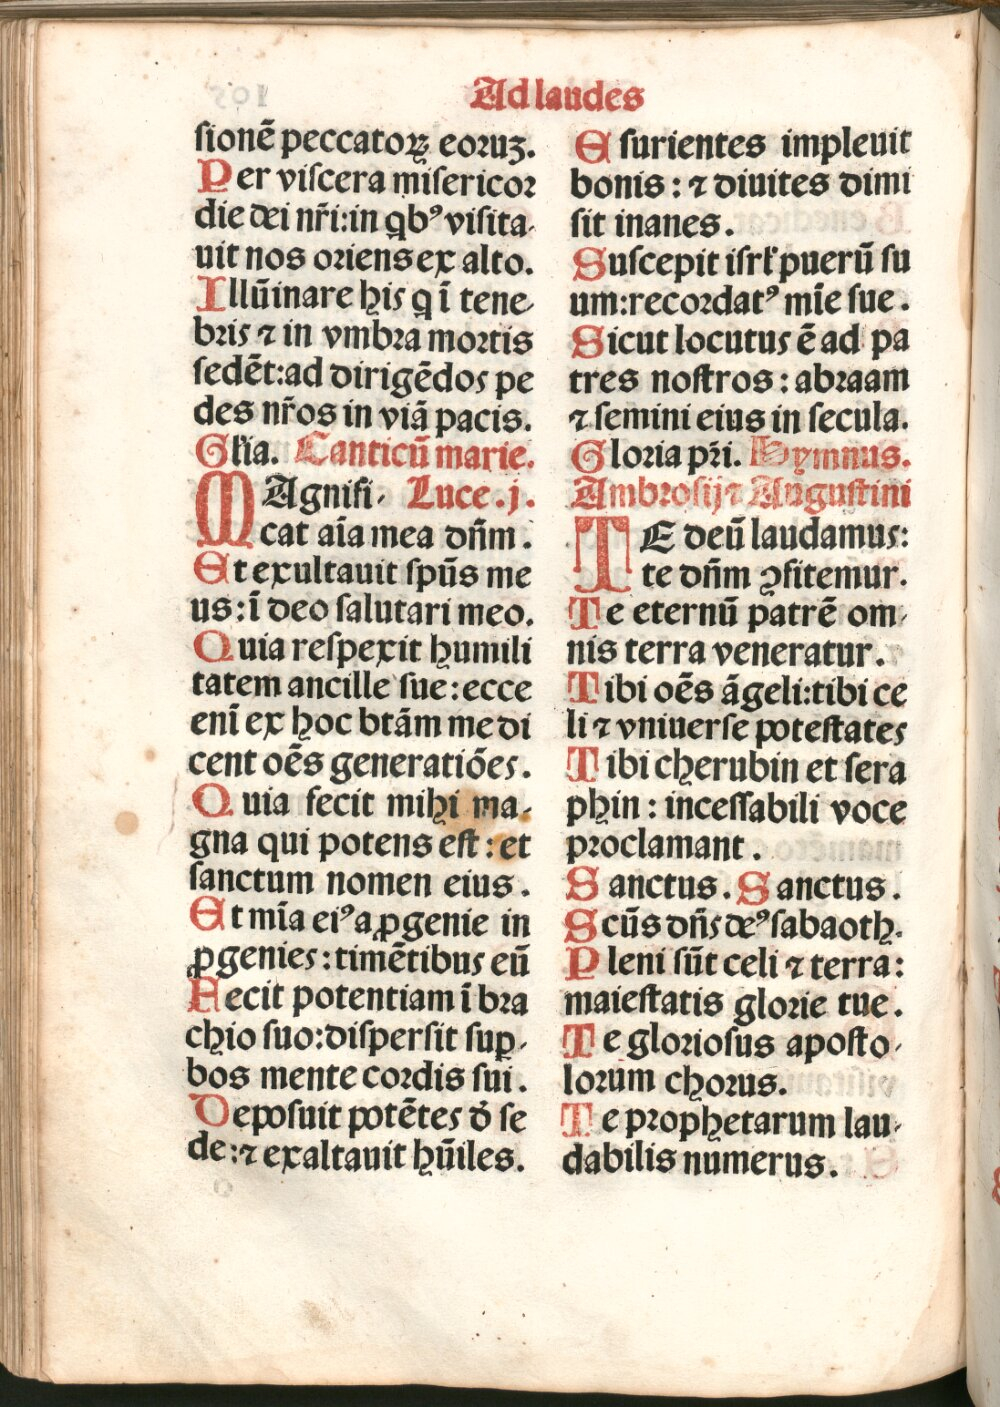 Ad laudes
sionē peccatoꝝ eoruꝫ.
Per viscera misericor
die dei nr̄i:in qb᾽ visita-
uit nos oriens ex alto.
Illūinare his q ī tene-
bris ⁊ in vmbra mortis
sedēt:ad dirigēdos pe
des nr̄os in viā pacis.
Gl'ia. Canticū marie.
MAgnifi- Luce.j.
cat aīa mea dn̄m.
Et exultauit spūs me
us:ī deo salutari meo.
Quia respexit humili
tatem ancille sue:ecce
enī ex hoc btām me di
cent oēs generatiōes.
Quia fecit mihi ma-
gna qui potens est:et
sanctum nomen eius.
Et mīa ei᾽ a ꝓgenie in
ꝓgenies:timētibus eū
Fecit potentiam ī bra
chio suo:dispersit suꝑ-
bos mente cordis sui.
Deposuit potētes d̄ se
de:⁊ exaltauit hūiles.
Esurientes impleuit
bonis: ⁊ diuites dimi
sit inanes.
Suscepit isrl' puerū su
um:recordat᾽ mīe sue.
Sicut locutus ē ad pa
tres nostros: abraam
⁊ semini eius in secula.
Gloria pr̄i. Hymnus.
Ambrosij ⁊ Augustini
TE deū laudamus:
te dn̄m ꝯfitemur.
Te eternū patrē om-
nis terra veneratur.
Tibi oēs āgeli:tibi ce
li ⁊ vniuerse potestates
Tibi cherubin et sera
phin: incessabili voce
proclamant.
Sanctus. Sanctus.
Scūs dn̄s de᾽ sabaoth.
Pleni sūt celi ⁊ terra:
maiestatis glorie tue.
Te gloriosus aposto-
lorum chorus.
Te prophetarum lau-
dabilis numerus.